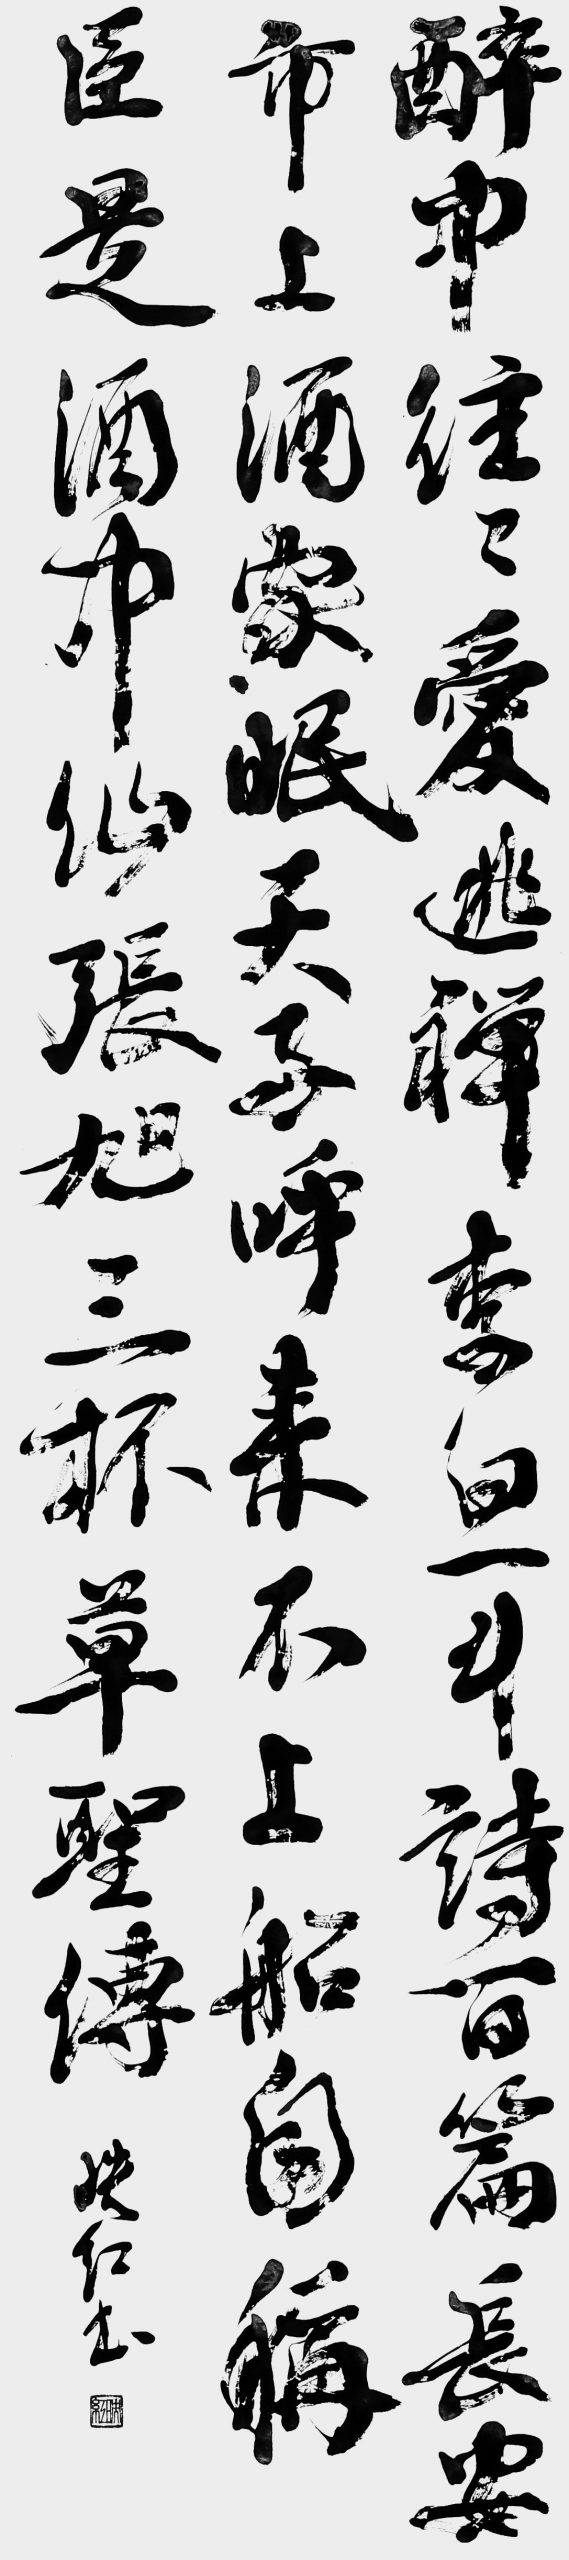 醉中往々愛逃禪李白一斗詩百篇長安
市上酒家眠天子呼來不上船自稱
臣是酒中仙張旭三杯草聖傳
映红书